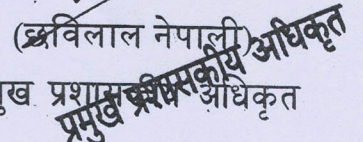 (छविलाल नेपाली)
मुख प्रशासकीय अधिकृत
प्रमुख प्रशासकीय अधिकृत